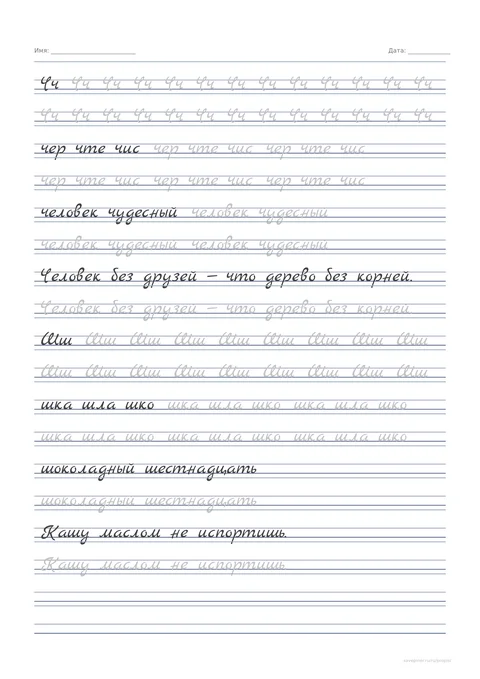 Имя: Дата:
Чч Чч Чч Чч Чч Чч Чч Чч Чч Чч Чч Чч Чч
Чч Чч Чч Чч Чч Чч Чч Чч Чч Чч Чч Чч Чч
чер чте чис чер чте чис чер чте чис
чер чте чис чер чте чис чер чте чис
человек чудесный человек чудесный
человек чудесный человек чудесный
Человек без друзей – что дерево без корней.
Человек без друзей – что дерево без корней
Шш Шш Шш Шш Шш Шш Шш Шш Шш
Шш Шш Шш Шш Шш Шш Шш Шш Шш
шка шла шко шка шла шко шка шла шко
шка шла шко шка шла шко шка шла шко
шоколадный шестнадцать
шоколадный шестнадцать
Кашу маслом не испортишь.
Кашу маслом не испортишь